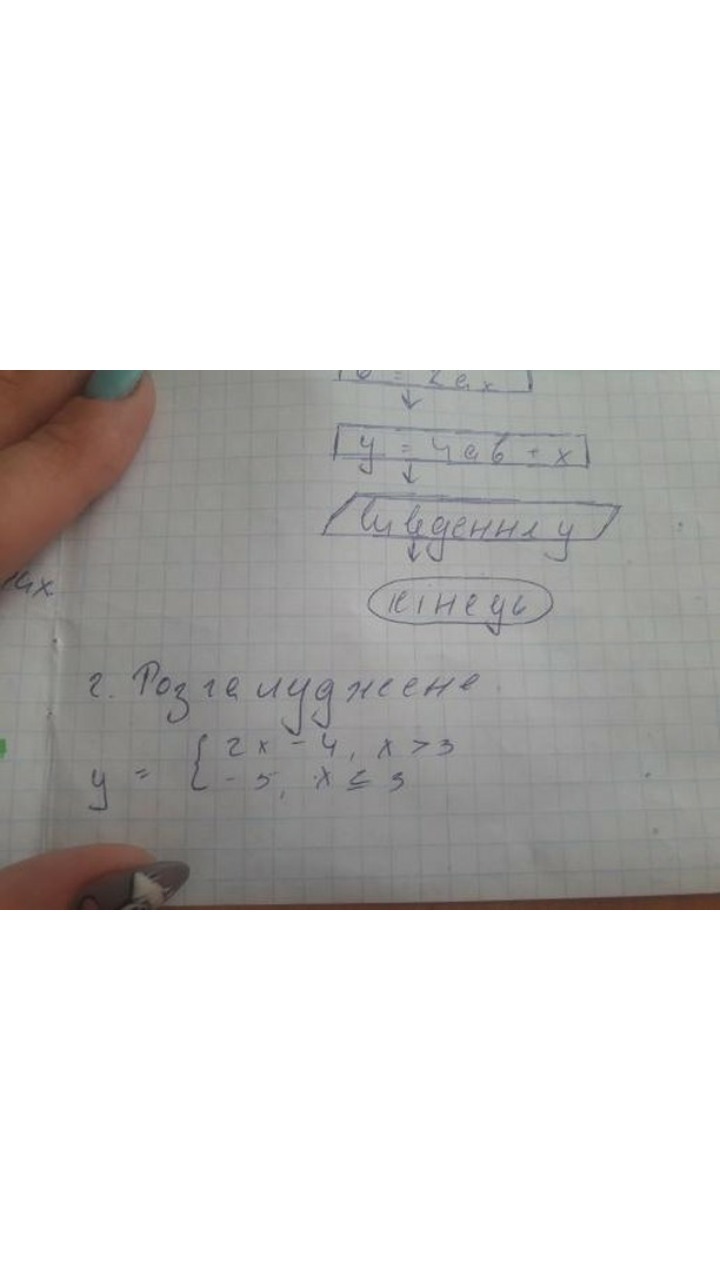 = 2ax
y = 4ab + x
Виведення y
кінець
2. Розгалуджене
y = { 2x - 4, x > 3
- 5, x ≤ 3